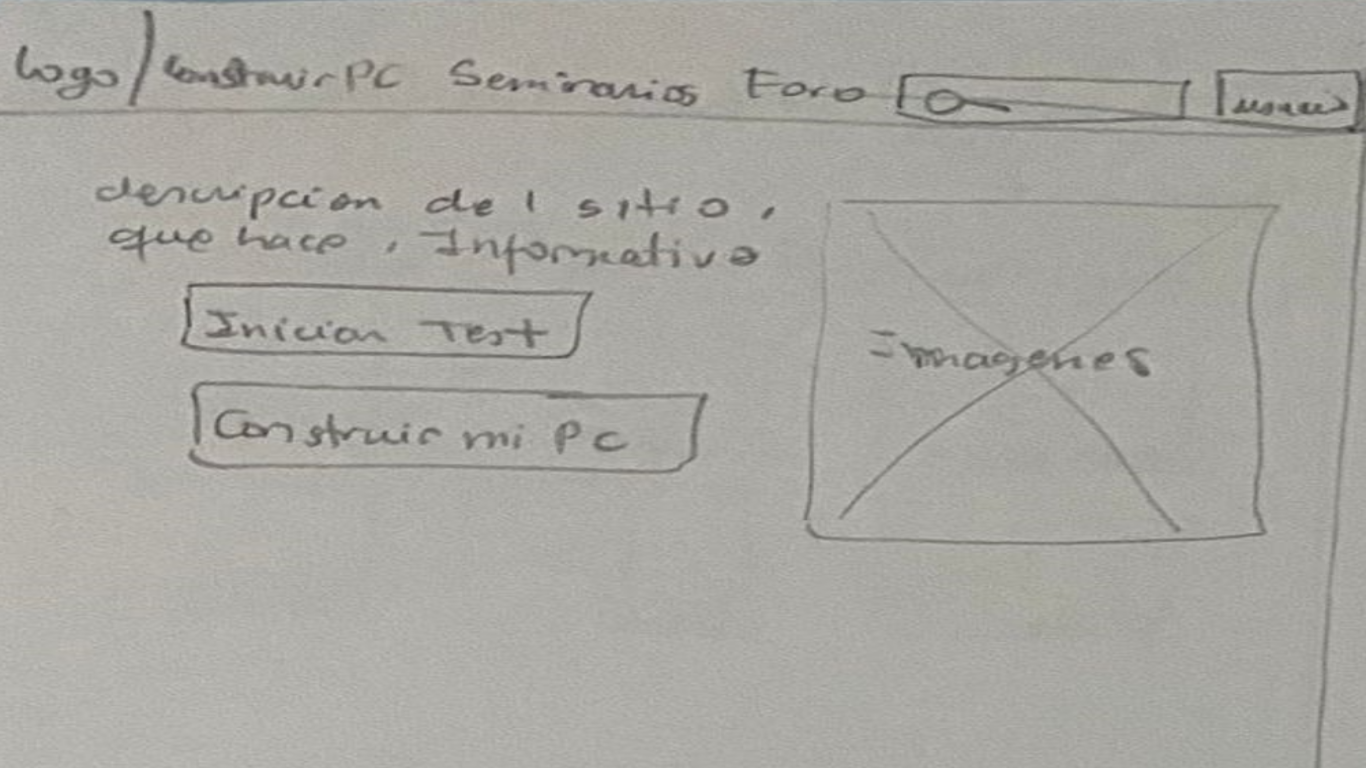 Logo Construir PC Seminarios Foro usuario
descripcion del sitio,
que hace, Informativo
Iniciar Test
Construir mi PC
Imagenes